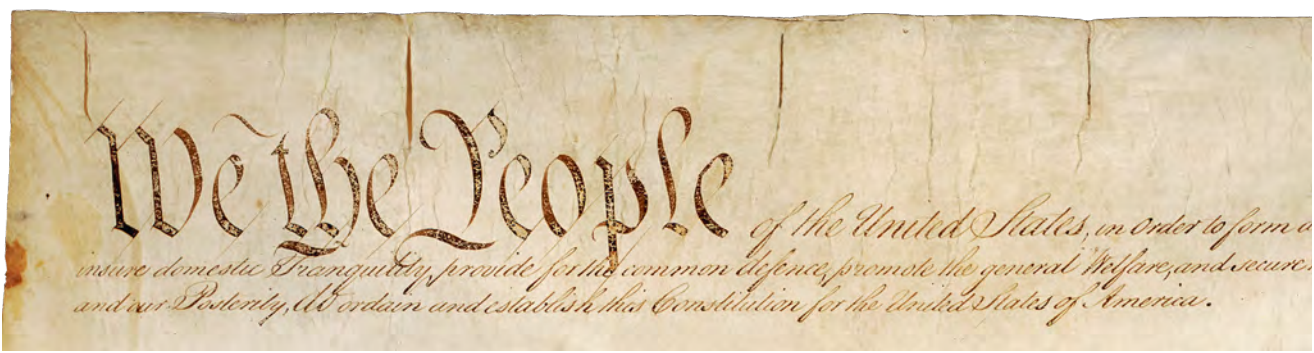 We the People of the United States, in Order to form a
insure domestic Tranquility, provide for the common defence, promote the general Welfare, and secure
and our Posterity, do ordain and establish this Constitution for the United States of America.